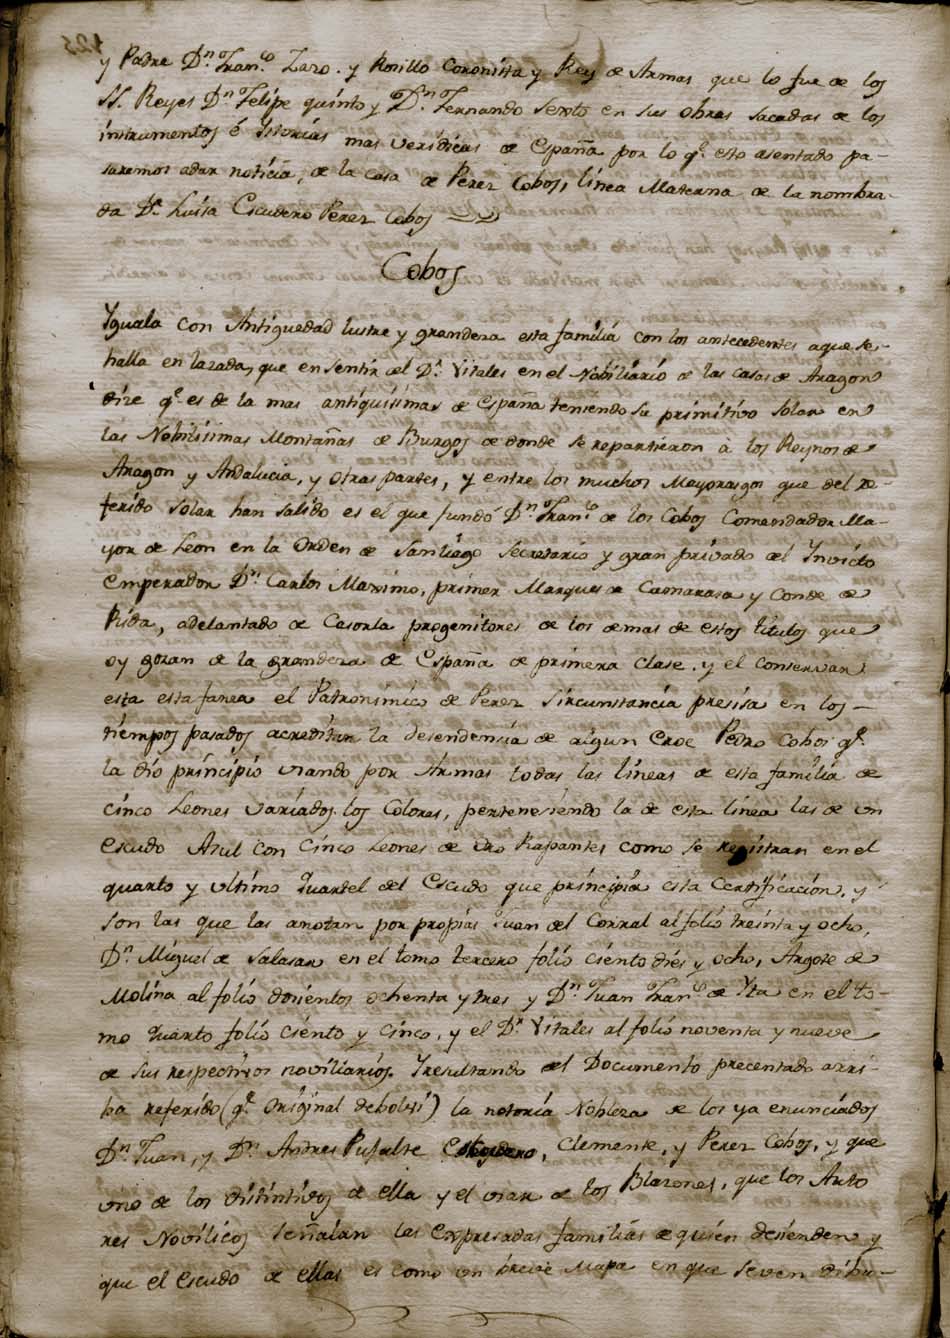 y Padre Dn. Franco. Zazo. y Rosillo Coronista y Rey de Armas que lo fue de los
SS. Reyes Dn. Felipe quinto y Dn. Fernando Sexto en sus obras sacadas de los
instrumentos é istorias mas veridicas de España por lo q.e esto asentado pa-
saremos adar noticia, de la casa de Perez Cobos, linea Materna de la nombra-
da Da. Luisa Escudero Perez Cobos
Cobos
Yguala con Antiguedad lustre y grandeza esta familia con los antecedentes aque se-
halla en lazada, que en sentir del Dr. Vitales en el Nobiliario de las casas de Aragon
dize q.e es de la mas antiquisimas de España teniendo su primitivo Solar en
las Nobilisimas Montañas de Burgos de donde se repartieron à los Reynos de
Aragon y Andalucia, y otras partes, y entre los muchos Mayorasgos que del re-
ferido Solar han salido es el que fundó Dn. Franco. de los Cobos Comendador Ma-
yor de Leon en la Orden de Santiago Secretario y gran privado del Invicto
emperador Dn. Carlos Maximo, primer Marques de Camarasa y Conde de
Risla, adelantado de Casorla progenitores de los demas de estos titulos que
oy gozan de la grandeza de España de primera clase. y el conservar
esta esta fanea el Patronimico de Perez Sircunstancia presisa en los-
tiempos pasados acreditan la desendencia de algun Eroe Pedro Cobos q.e
la dio principio usando por Armas todas las lineas de esta familia de
cinco Leones variados los Colores, perteneciendo la de esta linea las de un
escudo Azul con Cinco Leones de oro Rapantes como se registran en el
quarto y ultimo quartel del Escudo que principia esta Certificacion, y
son las que las anotan por propias Juan del Corral al folio treinta y ocho,
Dn. Miguel de Salasar en el tomo tercero folio ciento dies y ocho, Argote de
Molina al folio dosientos ochenta y tres y Dn. Juan Franco. de Yta en el to-
mo quarto folio ciento y cinco, y el Dr. Vitales al folio noventa y nueve
de sus respectivos noviliarios. Yresultando del Documento precentado arri-
ba referido (q.e original debolvi) la notoria Nobleza de los ya enunciados
Dn. Juan, y Dn. Andres Pusalte Escudero, Clemente, y Perez Cobos, y que
uno de los distintivos de ella y el usar de los Blazones, que los Auto
res Novilicos señalan las expresadas familias de quien desienden y
que el escudo de ellas es como un breve Mapa en que se ven dibu-